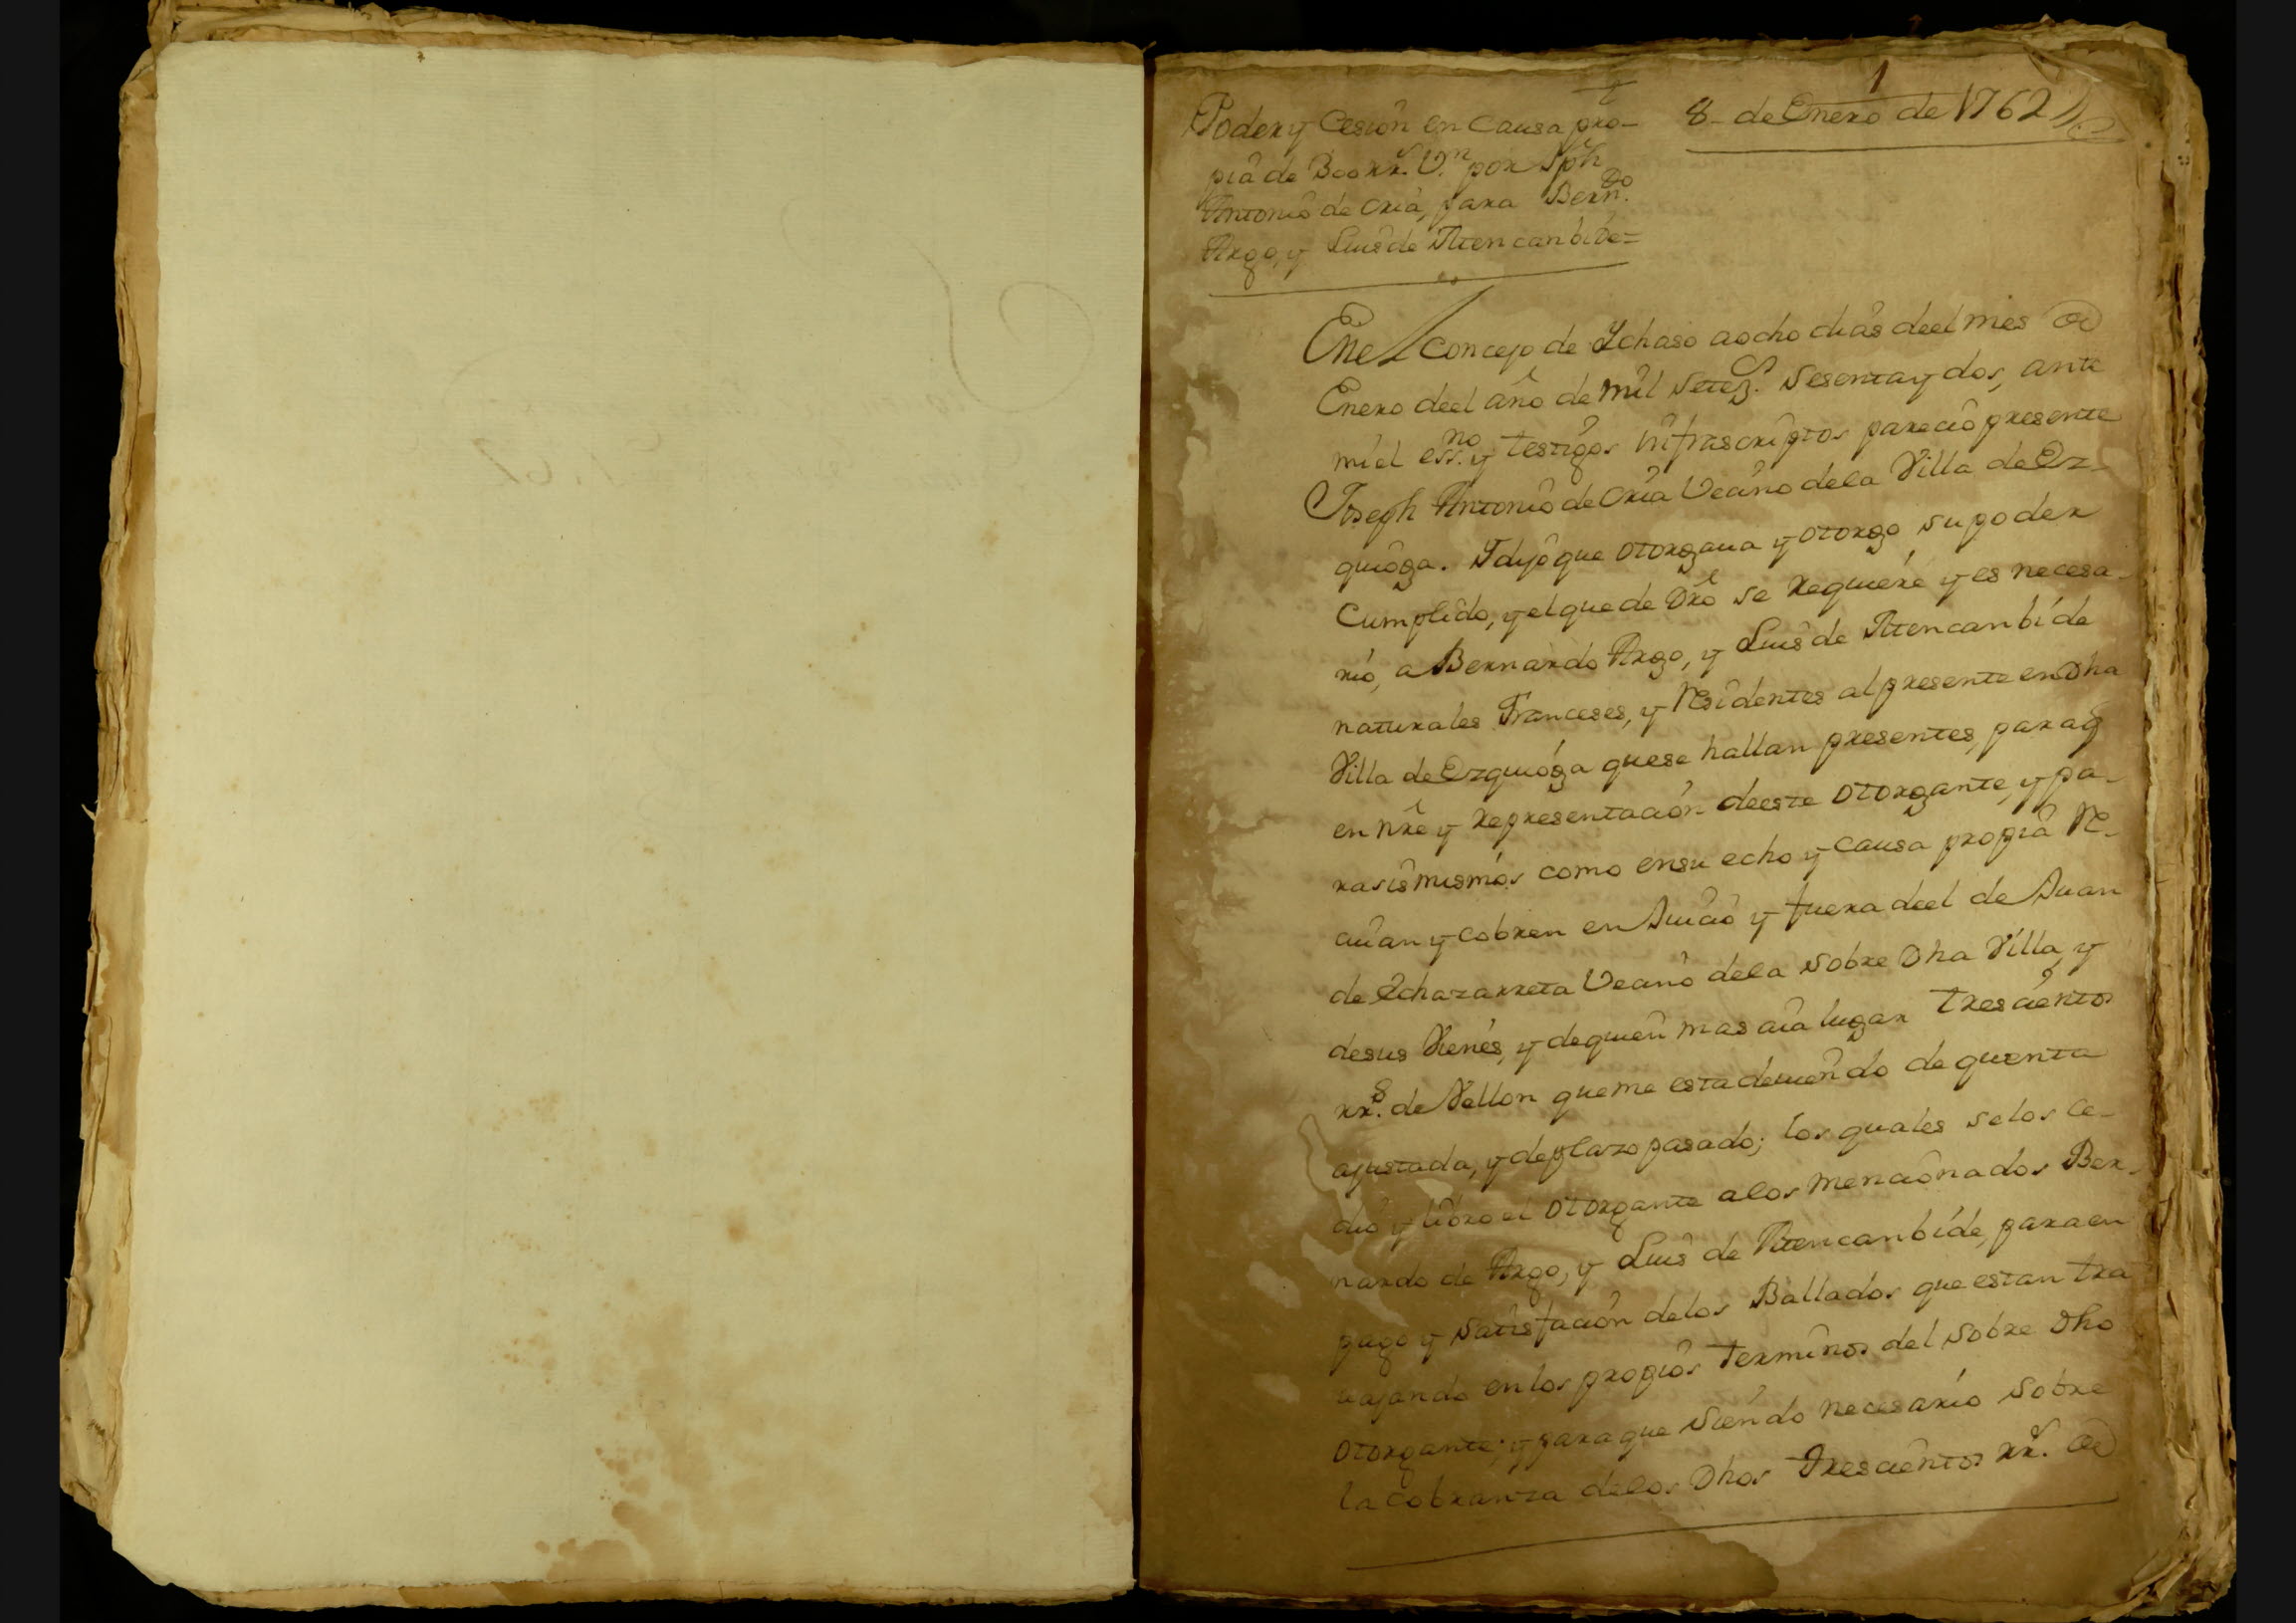 1
8 de Enero de 1762
Poder y Cesion en Causa pro-
pia de 300 rr.s V.n por Jph
Antonio de Oria, para Bern.do
Argo, y Luis de Iten canbide=
En el concejo de Ychaso a ocho dias de el mes de
Enero de el año de mil Setez.s Sesenta y dos, ante
mi el ess.no y testigos infrascriptos parecio presente
Joseph Antonio de Oria Vecino de la Villa de Ez-
quioga. Y dijo que otorgaua y otorgo su poder
Cumplido, y el que de Dro se requiere y es necesa-
rio, a Bernardo Argo, y Luis de Iten canbide
naturales Franceses, y Residentes al presente en Dha
Villa de Ezquioga que se hallan presentes, para q
en nre y representacion de este otorgante, y pa-
ra si mismos como en su echo y causa propia Re-
ciuan y cobren en Juicio y fuera de el de Juan
de Echazarreta Vecino de la sobre Dha Villa, y
de sus Vienes, y de quien mas aia lugar trescientos
rr.s de Vellon que me esta deuiendo de quenta
ajustada, y de plazo pasado; los quales se los ce-
dio y libro el otorgante a los mencionados Ber-
nardo de Argo, y Luis de Iten canbide, para en
pago y satisfacion de los Ballados que estan tra
uajando en los propios terminos del sobre Dho
otorgante; y para que siendo necesario sobre
la cobranza de los Dhos Trescientos rr.s de